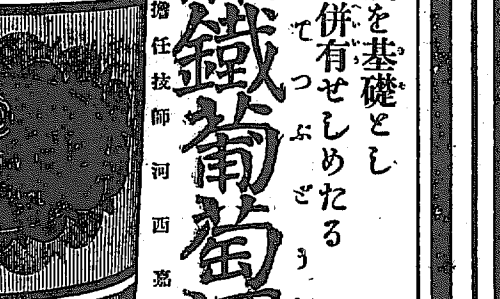 を基礎とし
併有せしめたる
てつぶどう
鐵葡萄
擔任技師河西嘉